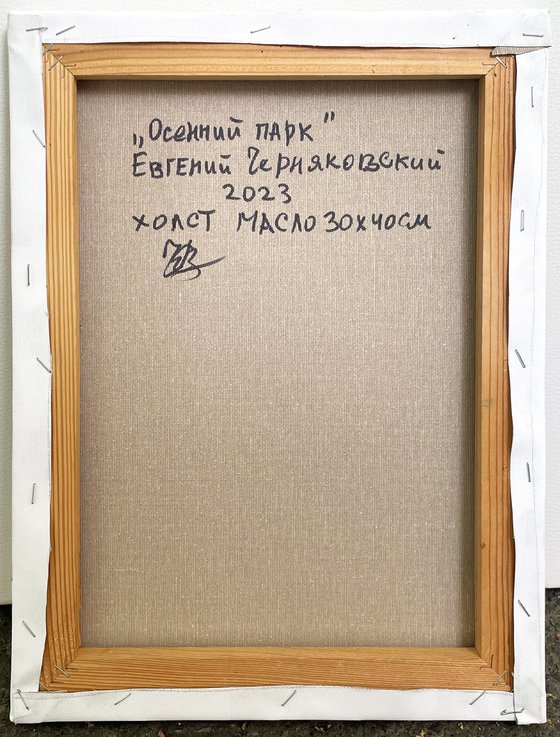 „Осенний парк"
Евгений Черняковский
2023
холст масло 30х40см